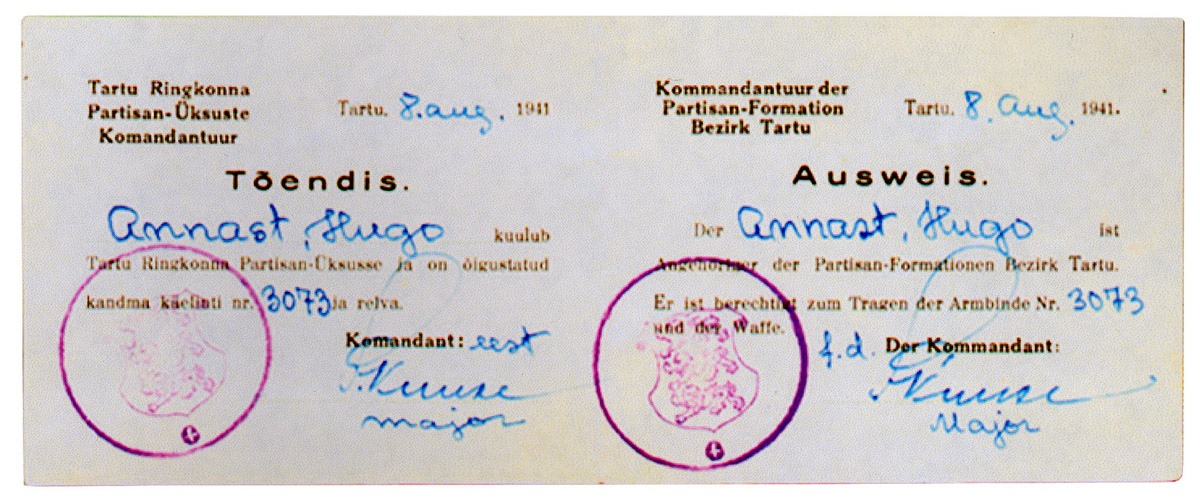 Tartu Ringkonna
Partisan-Üksuste
Komandantuur
Tartu, 8. aug. 1941
Tõendis.
Annast, Hugo kuulub
Tartu Ringkonna Partisan-Üksusse ja on õigustatud
kandma käelinti nr. 3073 ja relva.
Komandant: eest
Kuuse
major
Kommandantuur der
Partisan-Formation
Bezirk Tartu
Tartu, 8. Aug. 1941.
Ausweis.
Der Annast, Hugo ist
Angehöriger der Partisan-Formationen Bezirk Tartu.
Er ist berechtigt zum Tragen der Armbinde Nr. 3073
und der Waffe.
f.d. Der Kommandant:
Kuuse
Major